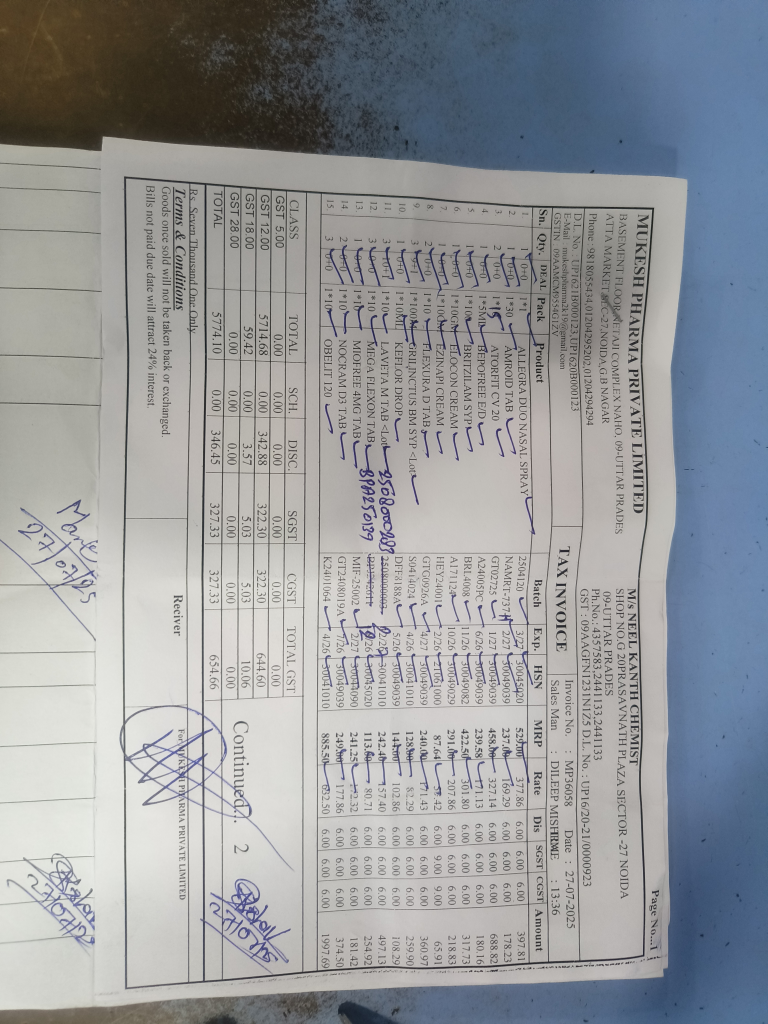 Page No...1
MUKESH PHARMA PRIVATE LIMITED
BASEMENT FLOOR NETAJI COMPLEX NAHO, 09-UTTAR PRADES
ATTA MARKET C-27-NOIDA,G.B NAGAR
Phone :9818085434,01204295202,01204294294
D.L. No : UP1621B000123,UP1620B000123
E-Mail mukeshpharma2k19@gmail.com
GSTIN 09AAMCM9554G1ZV
M/s NEEL KANTH CHEMIST
SHOP NO.G 20PRASAVNATH PLAZA SECTOR -27 NOIDA
09-UTTAR PRADES
Ph.No.: 4357583,2441133,2441133
GST : 09AAGFN1231N1Z5 D.L. No.: UP16/20-21/0000923
TAX INVOICE
Invoice No. : MP36058 Date : 27-07-2025
Sales Man : DILEEP MISHR : 13:36
Sn. Qty. DEAL Pack Product Batch Exp. HSN MRP Rate Dis SGST CGST Amount
1. 1 0+0 1*1 ALLEGRA DUO NASAL SPRAY 2504120 3/27 529.00 377.86 6.00 6.00 6.00 397.81
2. 1 0+0 1*30 AMROID TAB 2/27 30049039 237.00 169.29 6.00 6.00 6.00 178.23
3. 2 0+0 1*15 ATORFIT CV 20 GT02725 1/27 30049039 327.14 6.00 6.00 6.00 688.82
4. 1 0+0 1*5ML BEPOFREE E/D A24005PC 6/26 30049039 239.58 171.13 6.00 6.00 6.00 180.16
5. 1 0+0 BRITZILAM SYP BRL4008 11/26 30049082 422.50 301.80 6.00 6.00 6.00 317.73
6. 1 0+0 1*10GM ELOCON CREAM A171124 10/26 30049029 291.00 207.86 6.00 6.00 6.00 218.83
7. 1 0+0 EZINAPI CREAM HEY24001 2/26 21061000 87.64 6.00 9.00 9.00 65.91
8. 2 0+0 1*10 FLEXURA D TAB GTG0926A 4/27 30049039 240.00 171.43 6.00 6.00 6.00 360.97
9. 3 1*100ML GRILINCTUS BM SYP <Lot S0414024 4/26 30041010 82.29 6.00 6.00 6.00 259.90
10. 1 0+0 KEFLOR DROP DFF4188A 5/26 30049039 102.86 6.00 6.00 6.00 108.29
11. 3 1*10 LAVETA M TAB <Lot 2508000289 30041010 242.40 157.40 6.00 6.00 6.00 497.13
12. 3 0+0 1*10 MEGA FLEXON TAB 30045020 80.71 6.00 6.00 6.00 254.92
13. 1 0+0 1*10 MIOFREE 4MG TAB MIF-25002 2/27 30049090 241.25 172.32 6.00 6.00 6.00 181.42
14. 2 0+0 1*10 NOCRAM D3 TAB GT2408019A 7/26 30049039 249.00 177.86 6.00 6.00 6.00 374.50
15. 3 0+0 1*10 OBELIT 120 K2401064 4/26 30041010 885.50 632.50 6.00 6.00 6.00 1997.69
CLASS TOTAL SCH. DISC. SGST CGST TOTAL GST
GST 5.00 0.00 0.00 0.00 0.00 0.00 0.00
GST 12.00 5714.68 0.00 342.88 322.30 322.30 644.60
GST 18.00 59.42 0.00 3.57 5.03 5.03 10.06
GST 28.00 0.00 0.00 0.00 0.00 0.00 0.00
TOTAL 5774.10 0.00 346.45 327.33 327.33 654.66
Continued... 2
27/07/25
Rs. Seven Thousand One Only
Terms & Conditions
Goods once sold will not be taken back or exchanged.
Bills not paid due date will attract 24% interest.
Reciver
For MUKESH PHARMA PRIVATE LIMITED
27/07/25
27/07/25